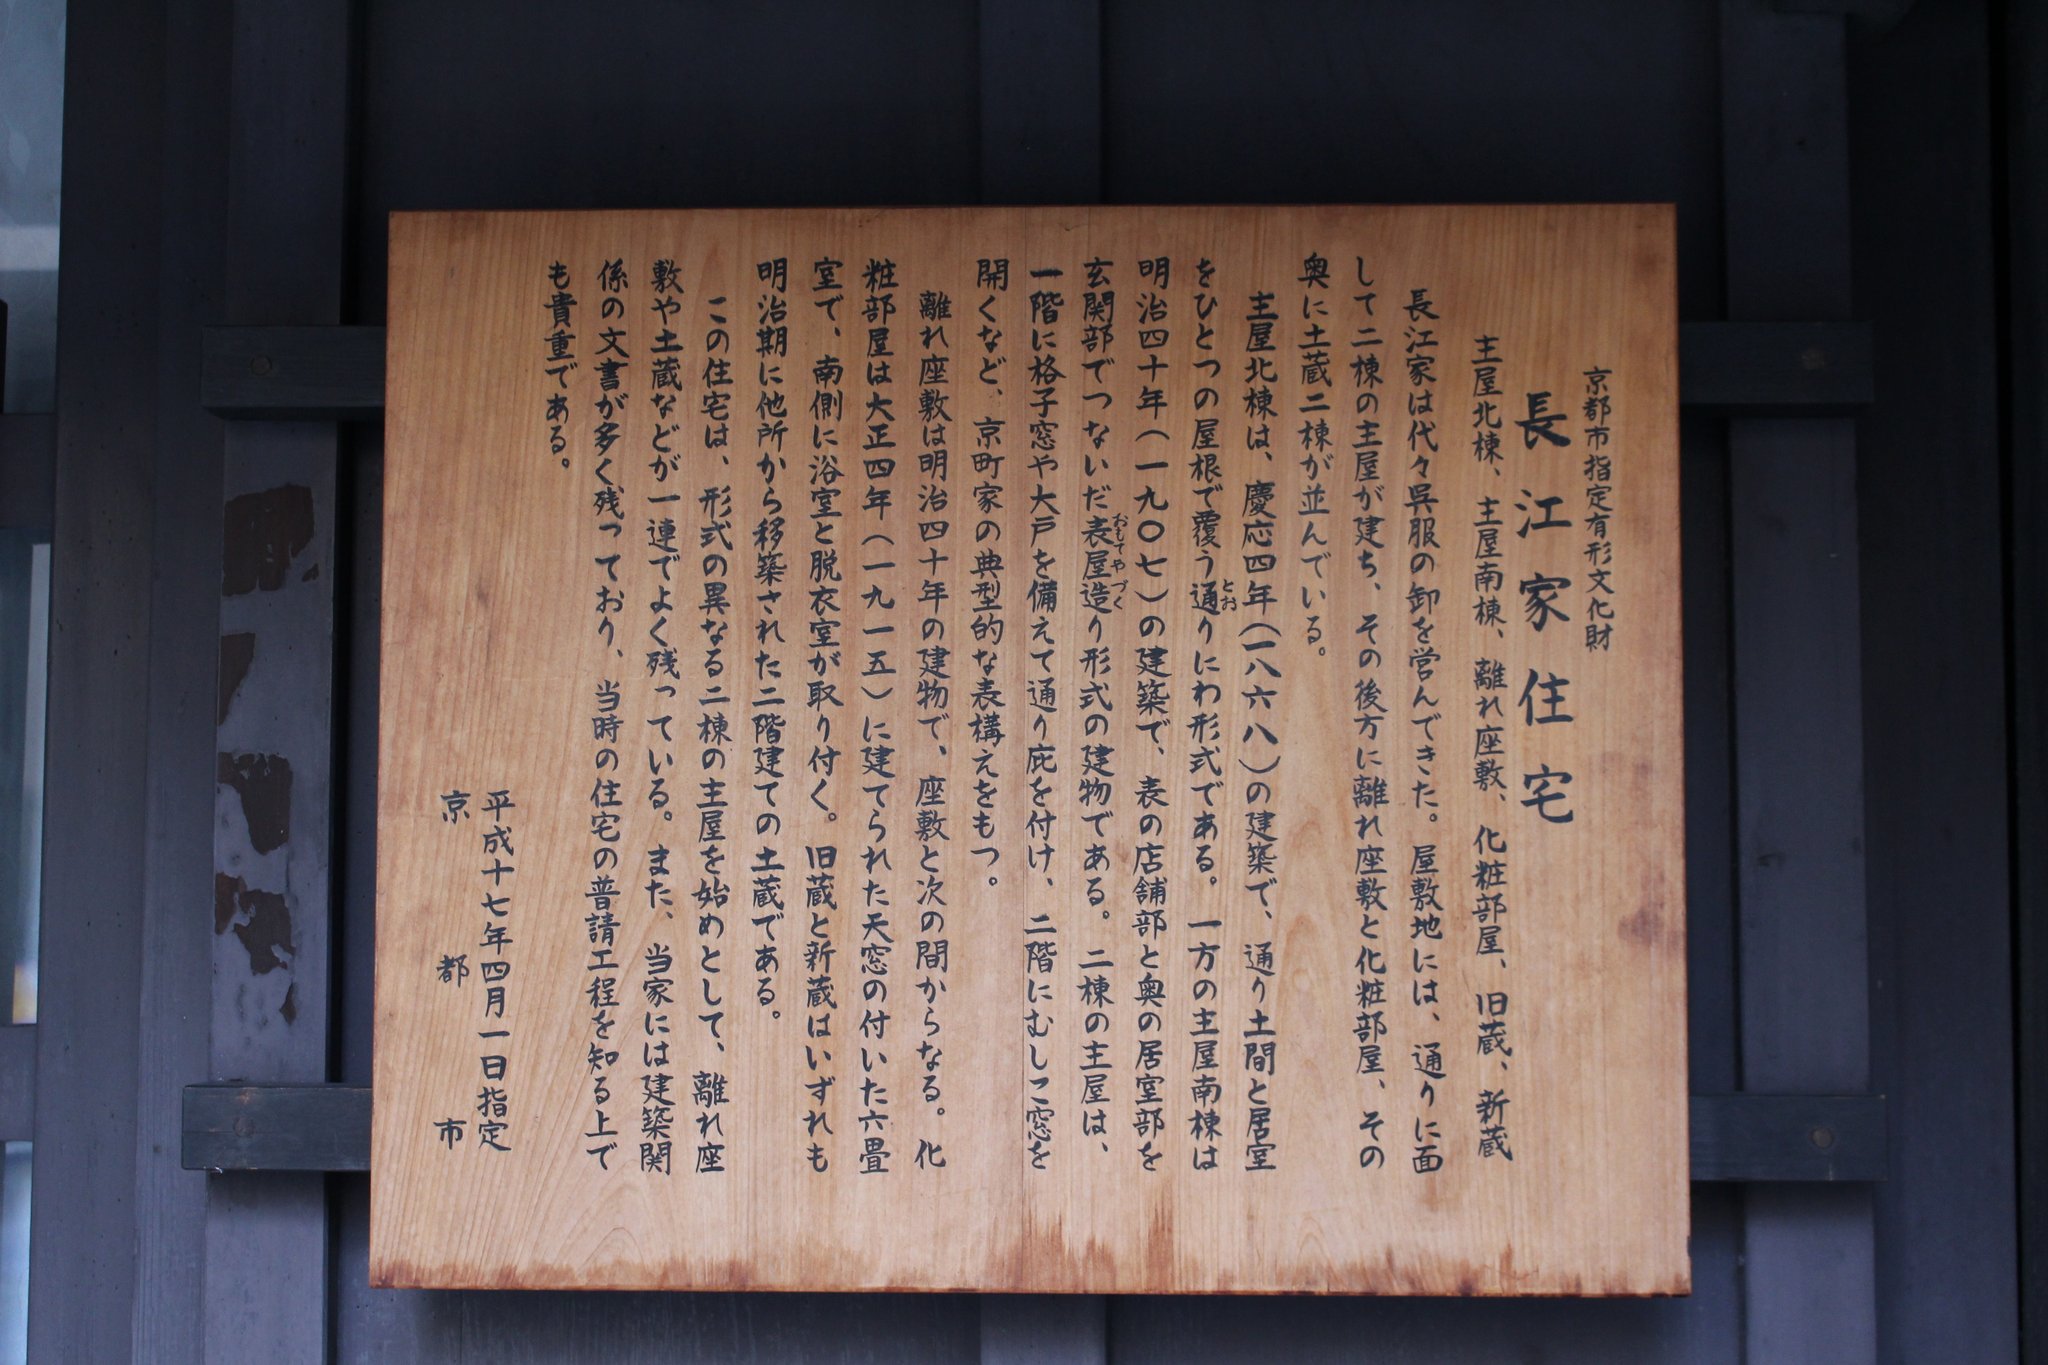 京都市指定有形文化財
長江家住宅
主屋北棟、主屋南棟、離れ座敷、化粧部屋、旧蔵、新蔵
長江家は代々呉服の卸を営んできた。屋敷地には、通りに面
して二棟の主屋が建ち、その後方に離れ座敷と化粧部屋、その
奥に土蔵二棟が並んでいる。
主屋北棟は、慶応四年(一八六八)の建築で、通り土間と居室
をひとつの屋根で覆う通りにわ形式である。一方の主屋南棟は
とお
明治四十年(一九〇七)の建築で、表の店舗部と奥の居室部を
玄関部でつないだ表屋造り形式の建物である。二棟の主屋は、
おもてやづく
一階に格子窓や大戸を備えて通り庇を付け、二階にむしこ窓を
開くなど、京町家の典型的な表構えをもつ。
離れ座敷は明治四十年の建物で、座敷と次の間からなる。化
粧部屋は大正四年(一九一五)に建てられた天窓の付いた六畳
室で、南側に浴室と脱衣室が取り付く。旧蔵と新蔵はいずれも
明治期に他所から移築された二階建ての土蔵である。
この住宅は、形式の異なる二棟の主屋を始めとして、離れ座
敷や土蔵などが一連でよく残っている。また、当家には建築関
係の文書が多く残っており、当時の住宅の普請工程を知る上で
も貴重である。
平成十七年四月一日指定
京都市